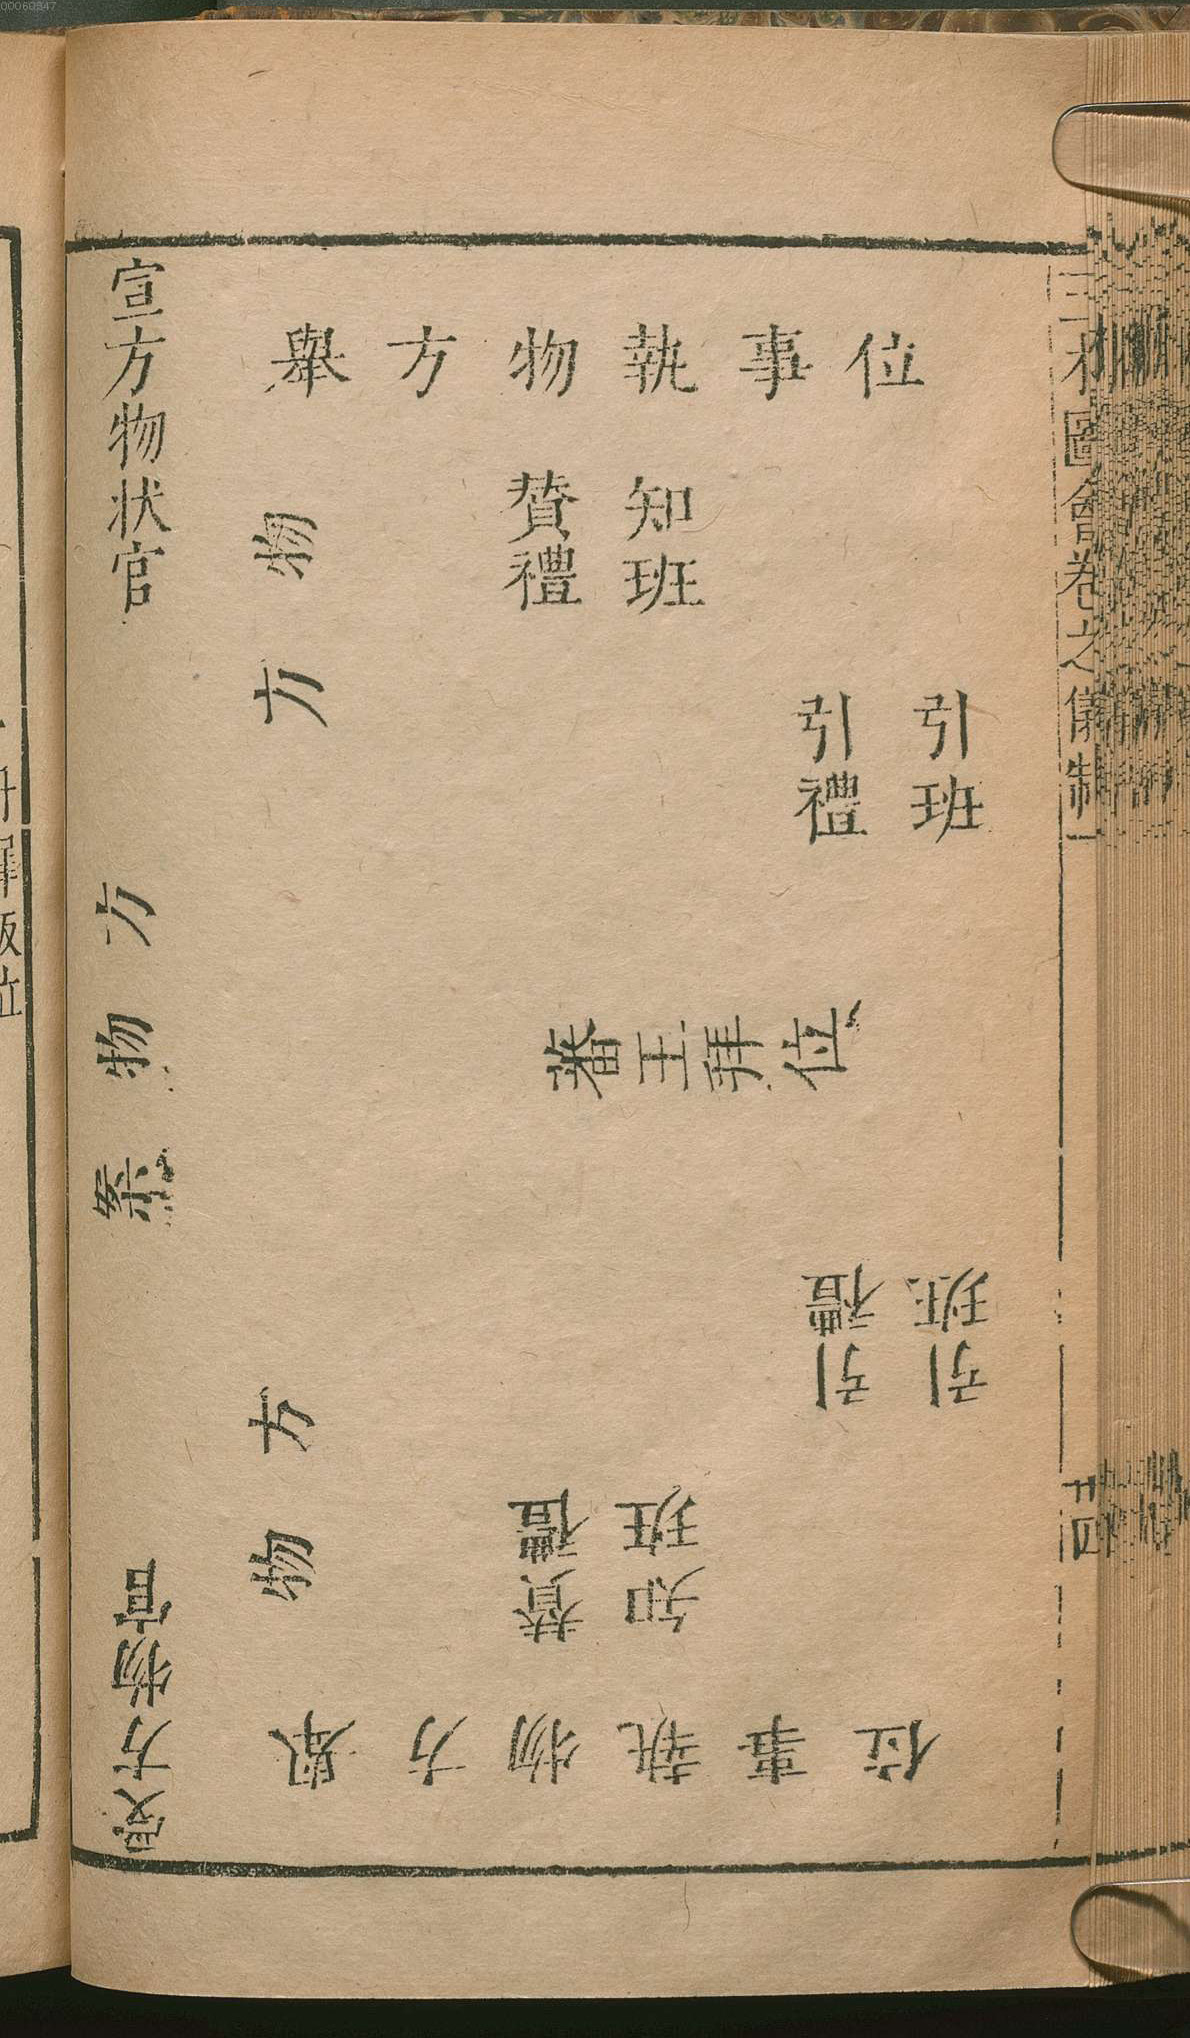 00060847
三才圖會卷之儀制一
四
舉方物執事位
宣方物状官
贊禮
知班
引禮
引班
物
方
方物案
蕃王拜位
方
物
引禮
引班
贊禮
知班
舉方物執事位
受方物官